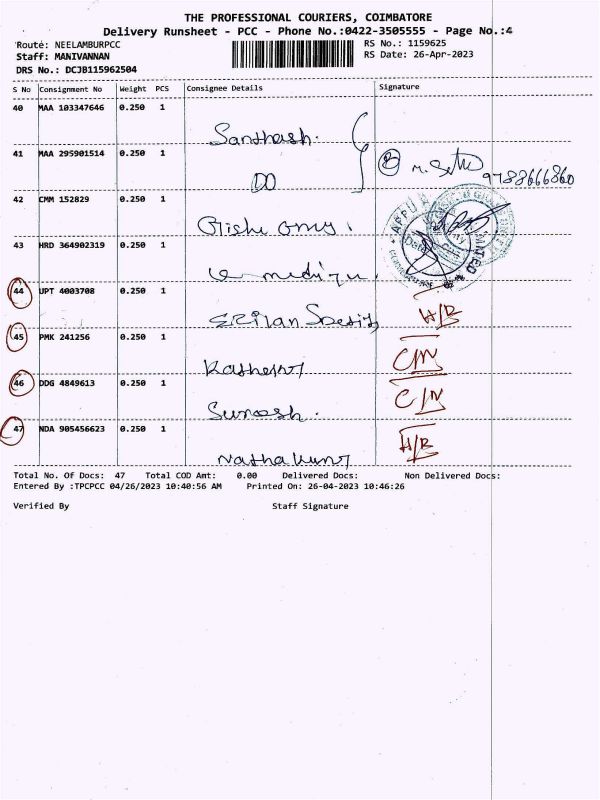 THE PROFESSIONAL COURIERS, COIMBATORE
Delivery Runsheet - PCC - Phone No.:0422-3505555 - Page No.:4
Route: NEELAMBURPCC RS No.: 1159625
Staff: MANIVANNAN RS Date: 26-Apr-2023
DRS No.: DCJB115962504
S No Consignment No Weight PCS Consignee Details Signature
40 MAA 103347646 0.250 1
Santhosh.
41 MAA 295901514 0.250 1
DO
9788666860
42 CMM 152829 0.250 1
43 HRD 364902319 0.250 1
44 UPT 4003708 0.250 1
H/B
45 PMK 241256 0.250 1
C/N
46 DDG 4849613 0.250 1
C/N
Suresh.
47 NDA 905456623 0.250 1
H/B
Total No. Of Docs: 47 Total COD Amt: 0.00 Delivered Docs: Non Delivered Docs:
Entered By :TPCPCC 04/26/2023 10:40:56 AM Printed On: 26-04-2023 10:46:26
Verified By Staff Signature